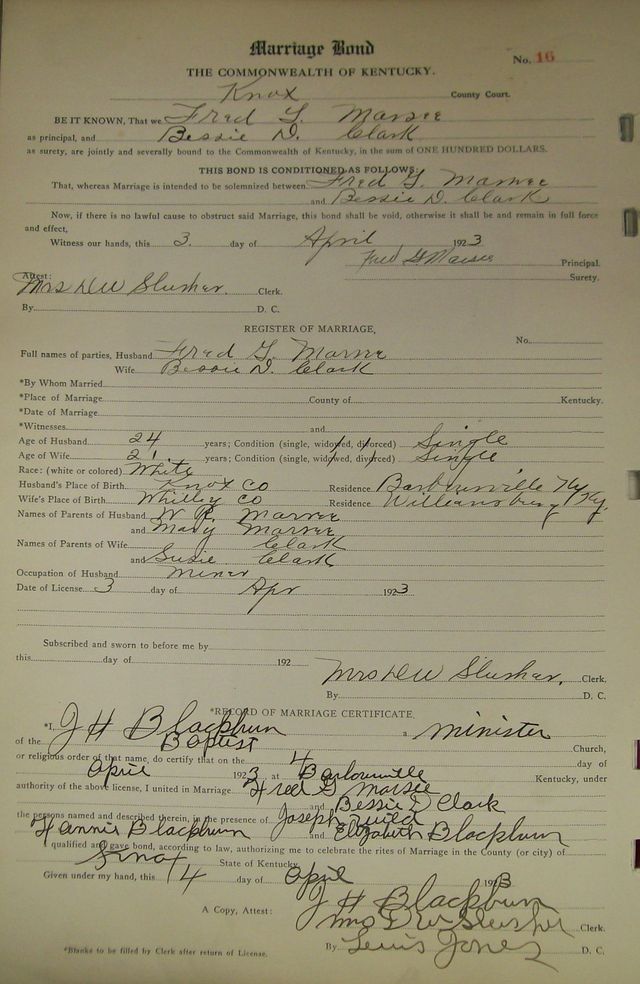 Marriage Bond
No. 16
THE COMMONWEALTH OF KENTUCKY.
Knox County Court.
BE IT KNOWN, That we Fred G. Marsee
as principal, and Bessie D. Clark
as surety, are jointly and severally bound to the Commonwealth of Kentucky, in the sum of ONE HUNDRED DOLLARS.
THIS BOND IS CONDITIONED AS FOLLOWS:
That, whereas Marriage is intended to be solemnized between Fred G. Marsee
and Bessie D. Clark
Now, if there is no lawful cause to obstruct said Marriage, this bond shall be void, otherwise it shall be and remain in full force
and effect,
Witness our hands, this 3. day of April, 1923
Fred G Marsee Principal.
Attest: Surety.
Mrs D W Slusher. Clerk.
By D. C.
REGISTER OF MARRIAGE,
No.
Full names of parties, Husband Fred G. Marsee
Wife Bessie D. Clark
*By Whom Married
*Place of Marriage County of Kentucky.
*Date of Marriage
*Witnesses and
Age of Husband 24 years; Condition (single, widowed, divorced) Single
Age of Wife 21 years; Condition (single, widowed, divorced) Single
Race: (white or colored) White
Husband's Place of Birth Knox Co Residence Barbourville Ky
Wife's Place of Birth Whitley Co Residence Williamsburg Ky.
Names of Parents of Husband W R. Marsee
and Mary Marsee
Names of Parents of Wife Clark
and Susie Clark
Occupation of Husband miner
Date of License 3 day of Apr 1923
Subscribed and sworn to before me by
this day of 192
Mrs D W Slusher, Clerk,
By D. C.
*RECORD OF MARRIAGE CERTIFICATE.
*I, J H Blackburn a minister
of the Baptist Church,
or religious order of that name, do certify that on the 4 day of
April 1923, at Barbourville Kentucky, under
authority of the above license, I united in Marriage Fred G Marsee
and Bessie D Clark
the persons named and described therein, in the presence of Joseph
Fannie Blackburn and Elizabeth Blackburn
I qualified and gave bond, according to law, authorizing me to celebrate the rites of Marriage in the County (or city) of
Knox State of Kentucky.
Given under my hand, this 4 day of April 1923
J H Blackburn
A Copy, Attest: Mrs D W Slusher Clerk.
By Lewis Jones D. C.
*Blanks to be filled by Clerk after return of License.